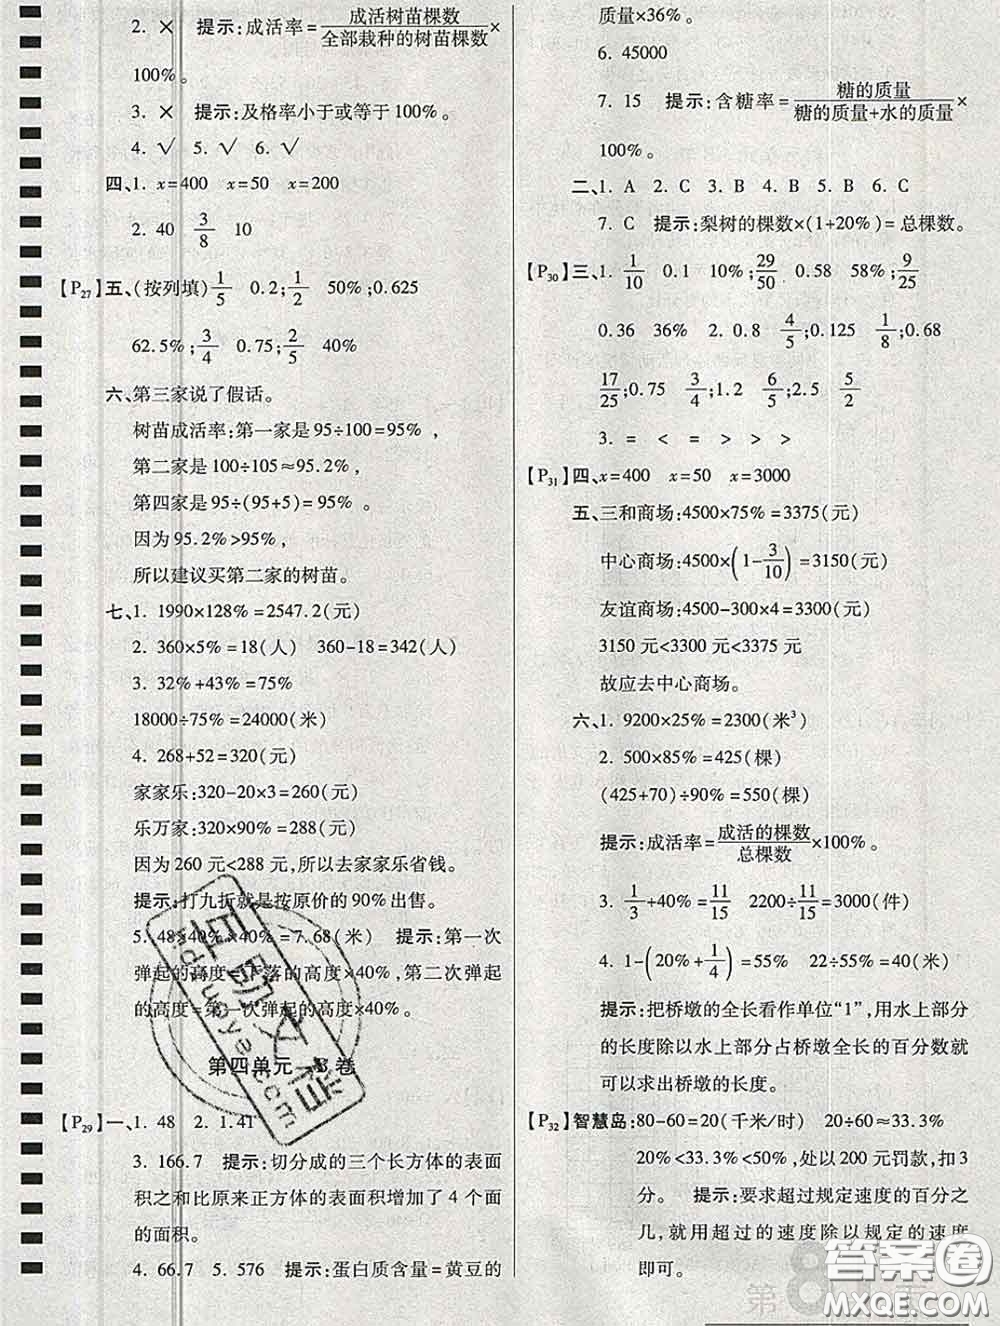 2. × 提示:成活率=成活树苗棵数/全部栽种的树苗棵数×
100%。
3. × 提示:及格率小于或等于100%。
4. √ 5. √ 6. √
四、1. x=400 x=50 x=200
2. 40 3/8 10
【P27】五、(按列填)1/5 0.2;1/2 50%;0.625
62.5%;3/4 0.75;2/5 40%
六、第三家说了假话。
树苗成活率:第一家是95÷100=95%,
第二家是100÷105≈95.2%,
第四家是95÷(95+5)=95%
因为95.2%>95%,
所以建议买第二家的树苗。
七、1. 1990×128%=2547.2(元)
2. 360×5%=18(人) 360-18=342(人)
3. 32%+43%=75%
18000÷75%=24000(米)
4. 268+52=320(元)
家家乐:320-20×3=260(元)
乐万家:320×90%=288(元)
因为260元<288元,所以去家家乐省钱。
提示:打九折就是按原价的90%出售。
5. 48×40%×40%=7.68(米) 提示:第一次
弹起的高度=下落的高度×40%,第二次弹起
的高度=第一次弹起的高度×40%。
第四单元 B卷
【P29】一、1. 48 2. 1.41
3. 166.7 提示:切分成的三个长方体的表面
积之和比原来正方体的表面积增加了4个面
的面积。
4. 66.7 5. 576 提示:蛋白质含量=黄豆的
质量×36%。
6. 45000
7. 15 提示:含糖率=糖的质量/糖的质量+水的质量×
100%。
二、1. A 2. C 3. B 4. B 5. B 6. C
7. C 提示:梨树的棵数×(1+20%)=总棵数。
【P30】三、1. 1/10 0.1 10%;29/50 0.58 58%;9/25
0.36 36% 2. 0.8 4/5;0.125 1/8;0.68
17/25;0.75 3/4;1.2 6/5;2.5 5/2
3. = < = > > >
【P31】四、x=400 x=50 x=3000
五、三和商场:4500×75%=3375(元)
中心商场:4500×(1-3/10)=3150(元)
友谊商场:4500-300×4=3300(元)
3150元<3300元<3375元
故应去中心商场。
六、1. 9200×25%=2300(米³)
2. 500×85%=425(棵)
(425+70)÷90%=550(棵)
提示:成活率=成活的棵数/总棵数×100%。
3. 1/3+40%=11/15 2200÷11/15=3000(件)
4. 1-(20%+1/4)=55% 22÷55%=40(米)
提示:把桥墩的全长看作单位“1”,用水上部分
的长度除以水上部分占桥墩全长的百分数就
可以求出桥墩的长度。
【P32】智慧岛:80-60=20(千米/时) 20÷60≈33.3%
20%<33.3%<50%,处以200元罚款,扣3
分。 提示:要求超过规定速度的百分之
几,就用超过的速度除以规定的速度
即可。
第8页
答案圈
MXQE.COM